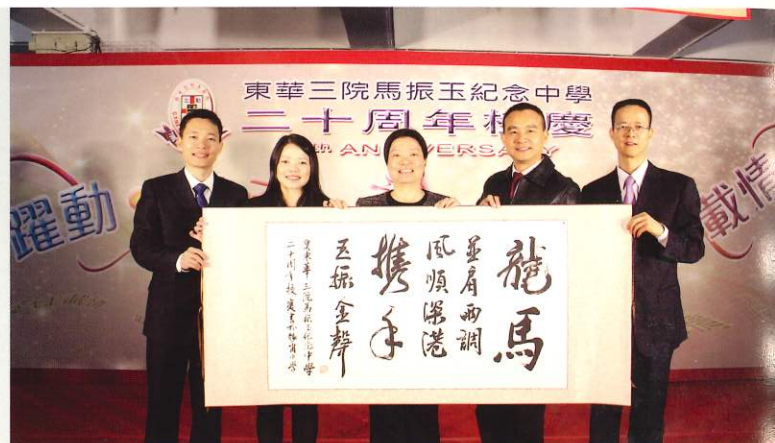 東華三院馬振玉紀念中學
二十周年校慶
th ANNIVERSARY
躍動
載情
龍馬
並肩雨調
風順深港
攜手
玉振金聲
賀東華三院馬振玉紀念中學
二十周年校慶